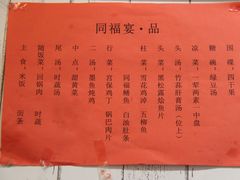 同福宴·品
围碟，四干果
糖碗，绿豆汤
凉菜，一荤两素一中盘
头汤，竹荪肝膏汤（位上）
头菜，黑松露烩鱼片
柱菜，雪花鸡淖 五柳鱼
同福鳝鱼 白油肚条
行菜，宫保鸡丁 锅巴肉片
二汤，墨鱼炖鸡
中点，甜黄菜
尾汤，时蔬汤
随饭菜，回锅肉 时蔬
主食，米饭 街斋